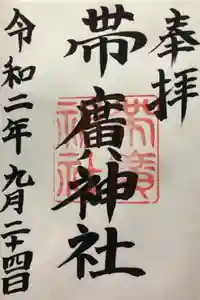 奉拝
帯廣神社
令和二年九月二十四日